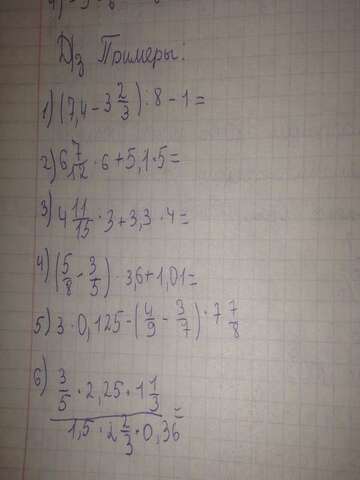 Д/з Примеры:
1) (7,4 - 3 2/3) : 8 - 1 =
2) 6 7/12 · 6 + 5,1 · 5 =
3) 4 11/15 · 3 + 3,3 · 4 =
4) (5/8 - 3/5) · 3,6 + 1,01 =
5) 3 · 0,125 - (4/9 - 3/7) · 7 7/8
6) 3/5 · 2,25 · 1 1/3
1,5 · 2 2/3 · 0,36 =